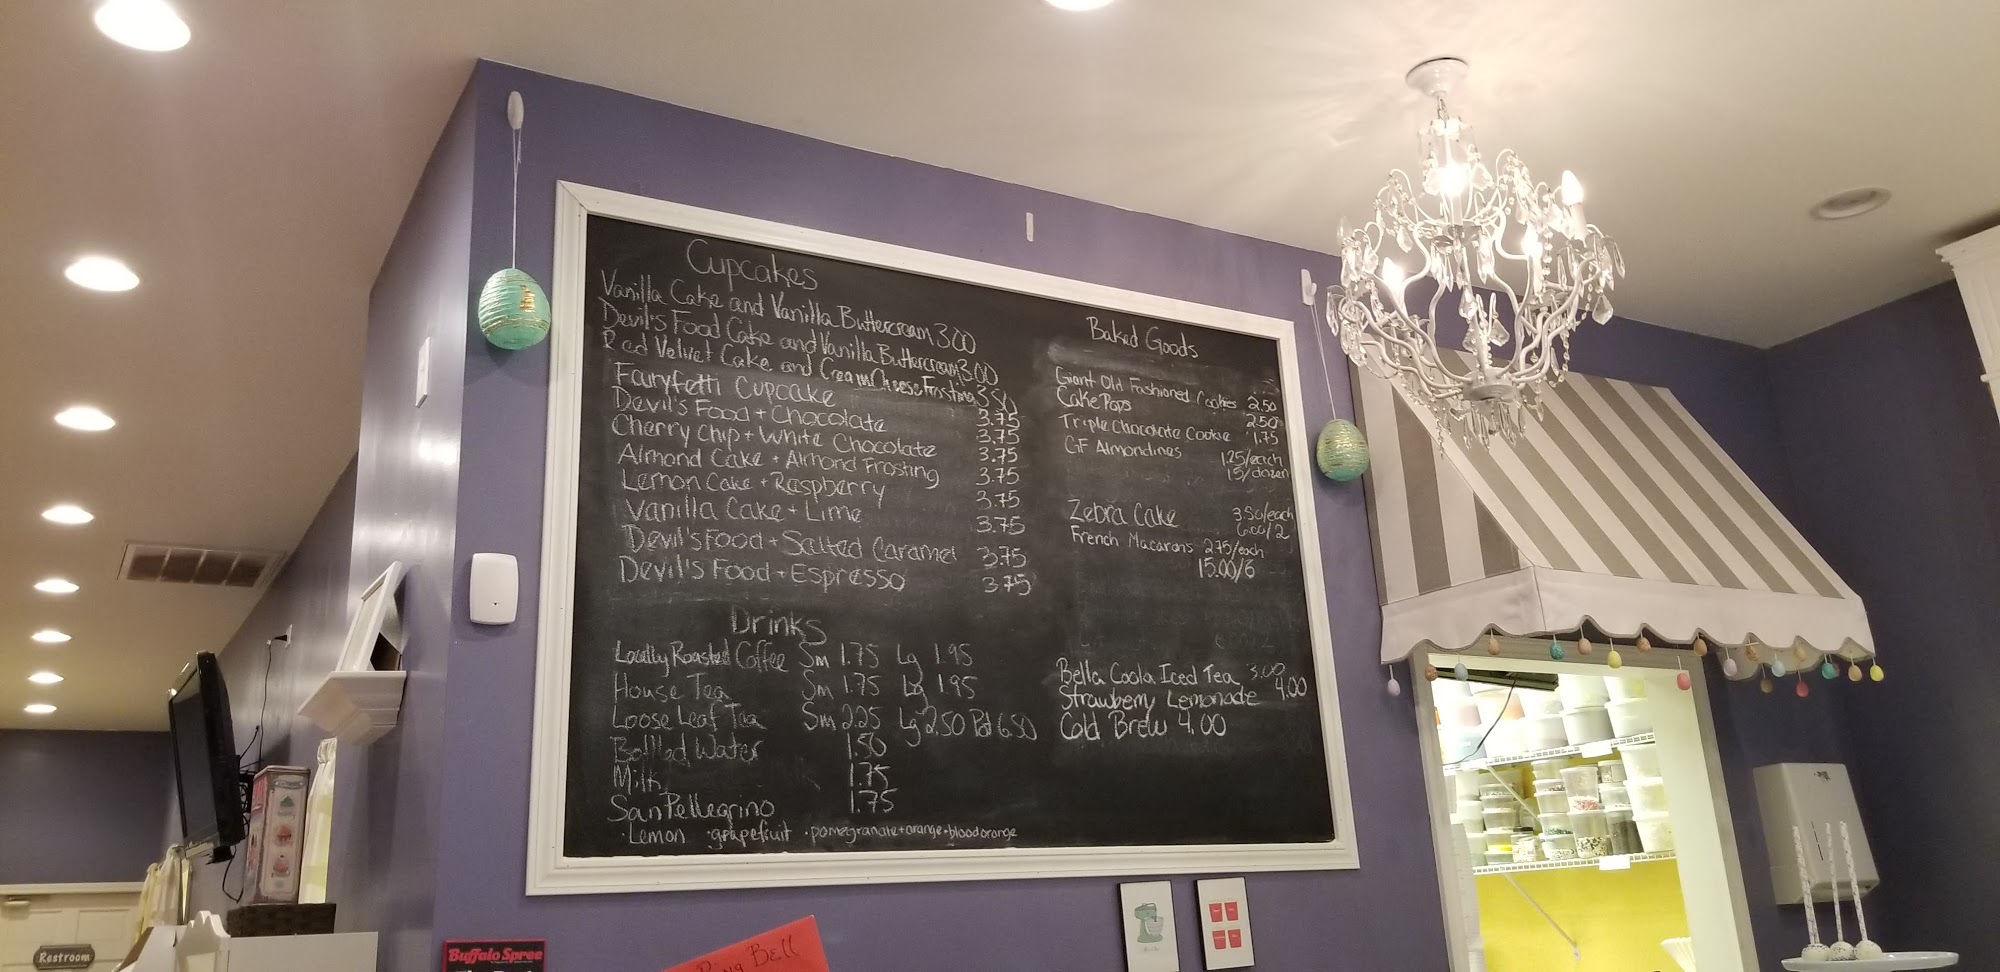 Cupcakes
Vanilla Cake and Vanilla Buttercream 3.00
Devil's Food Cake and Vanilla Buttercream 3.00
Red Velvet Cake and Cream Cheese Frosting 3.50
Funfetti Cupcake 3.75
Devil's Food + Chocolate 3.75
Cherry Chip + White Chocolate 3.75
Almond Cake + Almond Frosting 3.75
Lemon Cake + Raspberry 3.75
Vanilla Cake + Lime 3.75
Devil's Food + Salted Caramel 3.75
Devil's Food + Espresso 3.75
Drinks
Locally Roasted Coffee Sm 1.75 Lg 1.95
House Tea Sm 1.75 Lg 1.95
Loose Leaf Tea Sm 2.25 Lg 2.50 Pot 6.50
Bottled Water 1.50
Milk 1.75
San Pellegrino 1.75
• Lemon • grapefruit • pomegranate+orange • blood orange
Baked Goods
Giant Old Fashioned Cookies 2.50
Cake Pops 2.50
Triple Chocolate Cookie 1.75
GF Almondines 1.25/each
15/dozen
Zebra Cake 3.50/each
6.00/2
French Macarons 2.75/each
15.00/6
Bella Coola Iced Tea 3.00
Strawberry Lemonade 4.00
Cold Brew 4.00
Restroom
Buffalo Spree
Bell